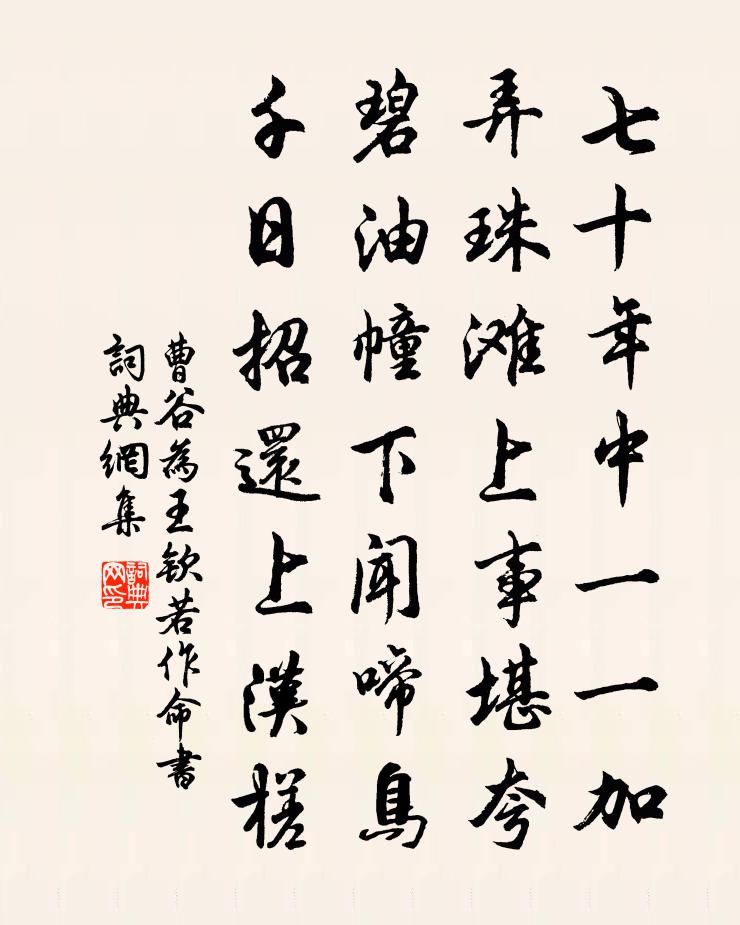 七十年中一一加
弄珠滩上事堪夸
碧油幢下闻啼鳥
千日招還上漢槎
曹谷為王欽若作命書
詞典網集
詞典
网印